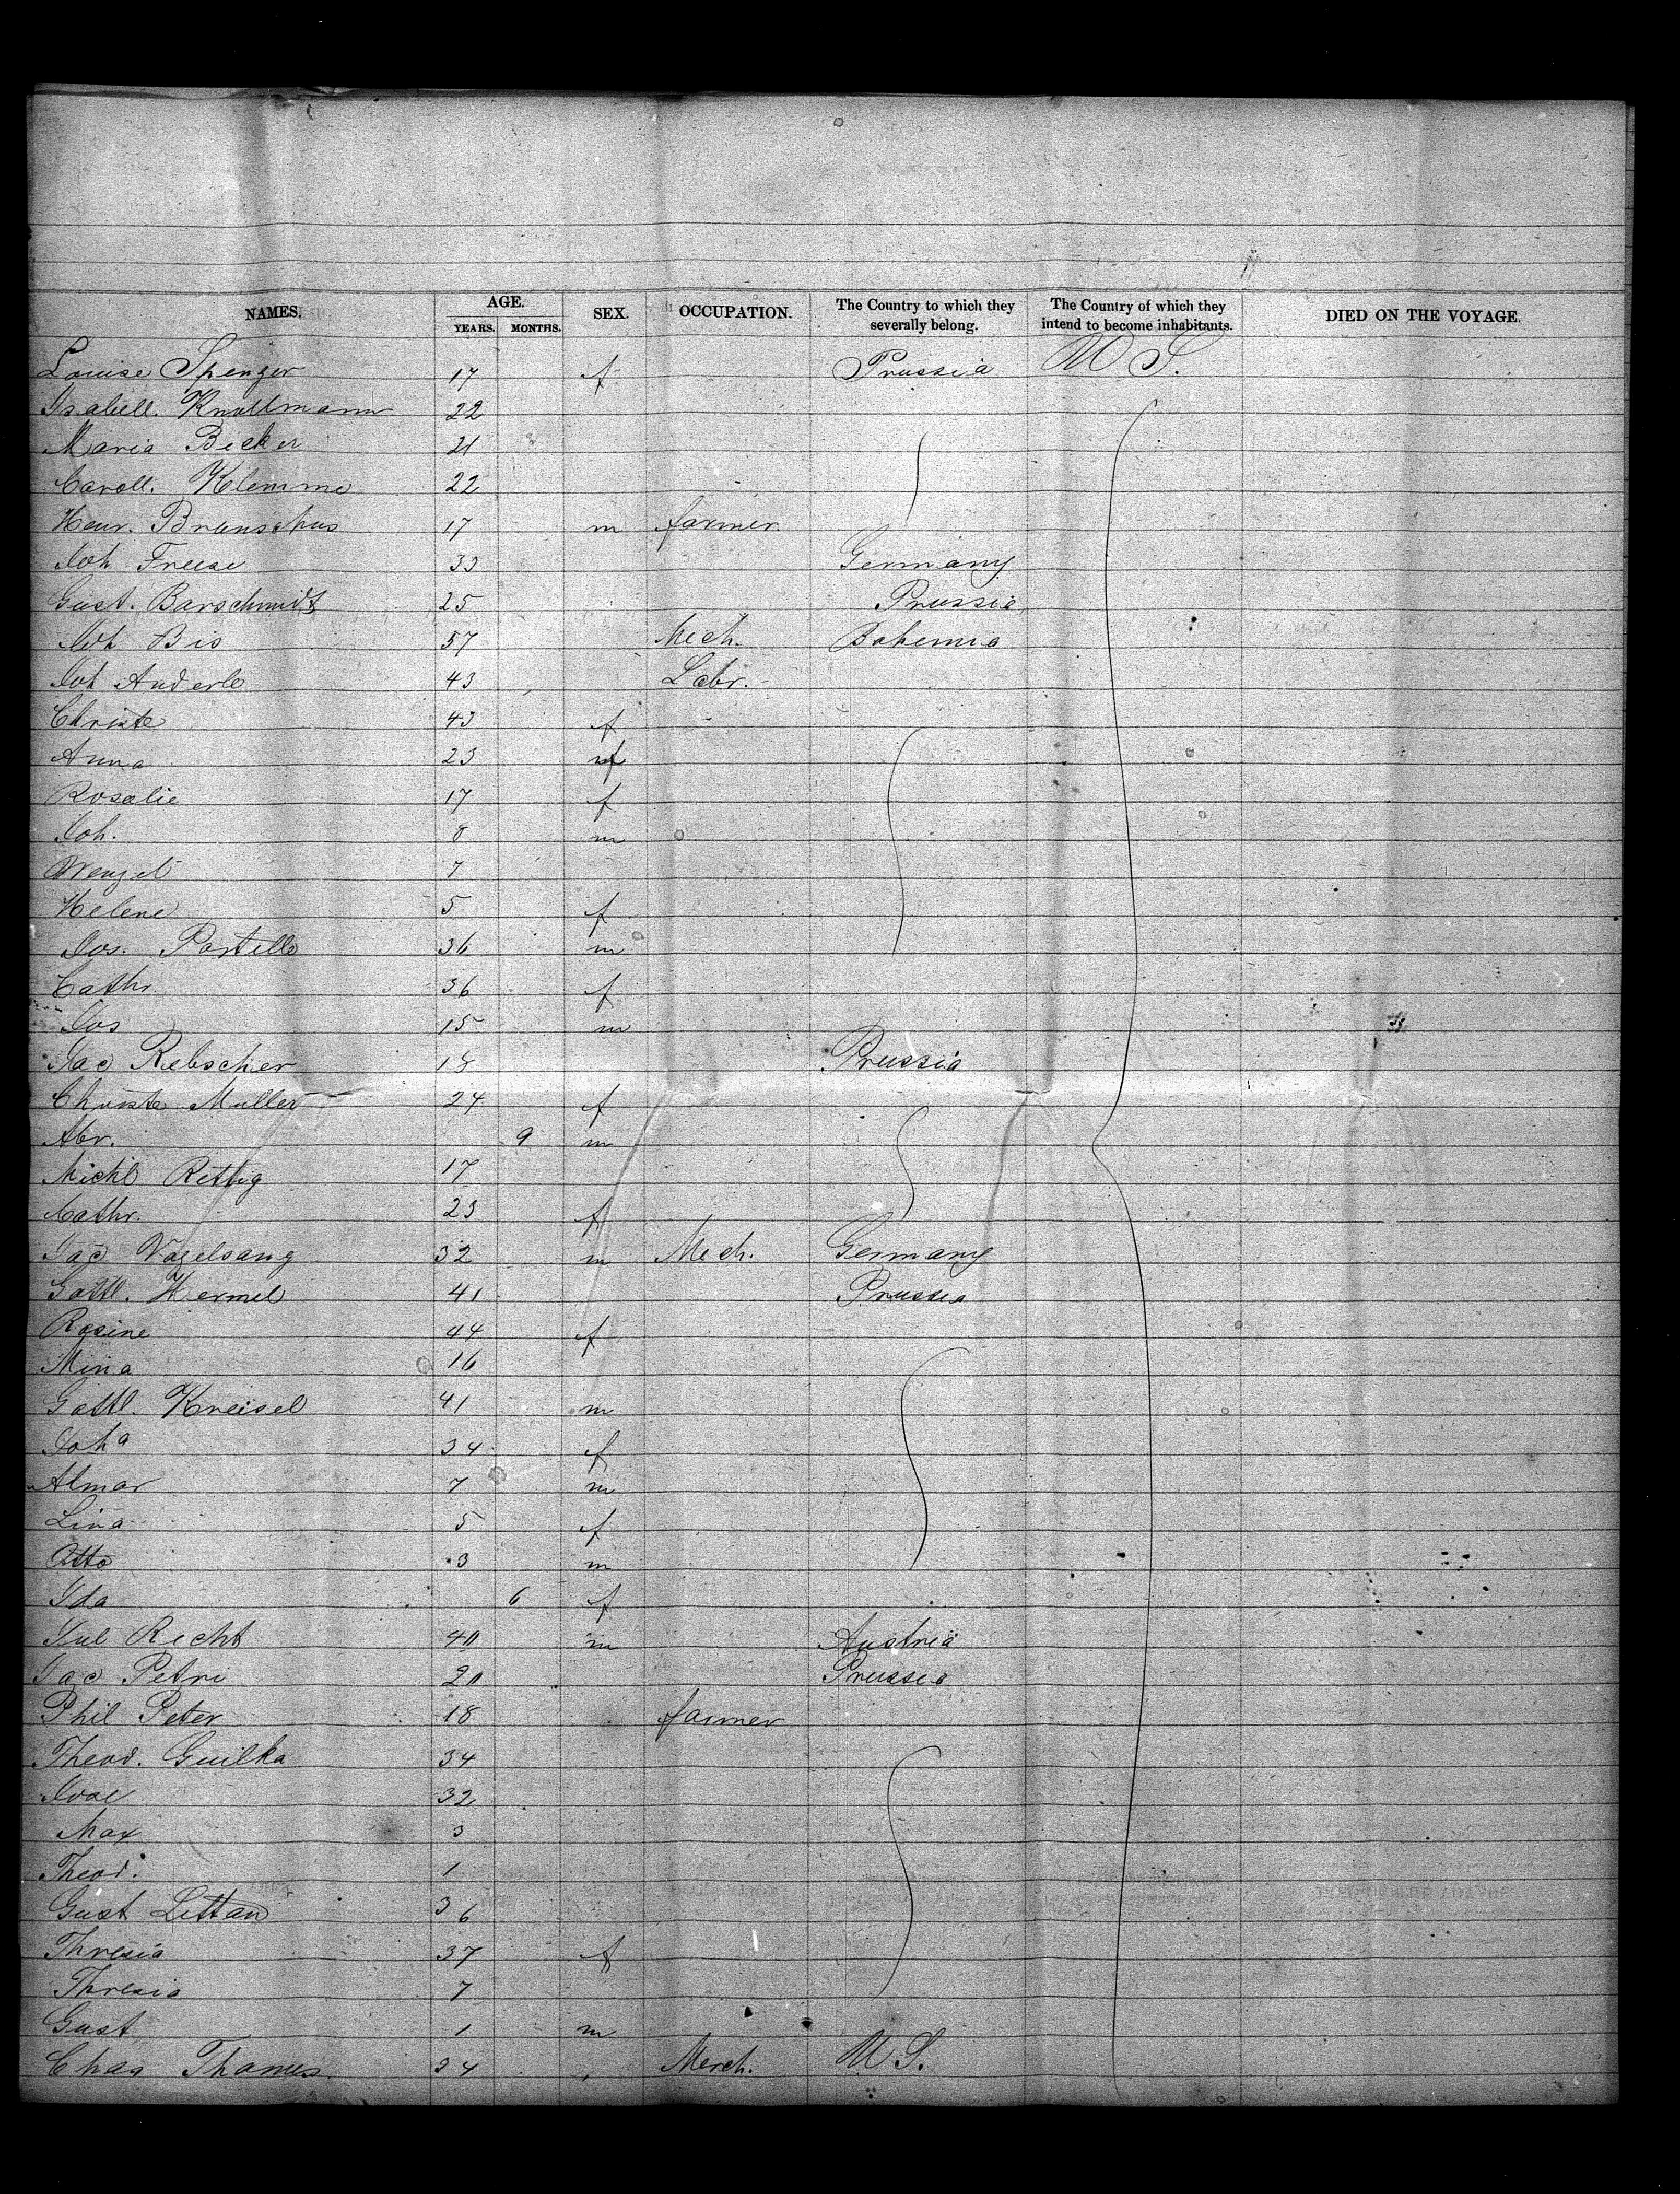 NAMES. AGE. SEX. OCCUPATION. The Country to which they severally belong. The Country of which they intend to become inhabitants. DIED ON THE VOYAGE.
YEARS. MONTHS.
Louise Spenger 17 f Prussia U S.
Isabell. Knollmann 22
Maria Becker 21
Caroll. Klemme 22
Heinr. Brunschus 17 m farmer
Joh Freese 33 Germany
Gust. Barschmidt 25 Prussia
Joh Bis 57 Mech. Bohemia
Joh Anderle 43 Labr.
Christe 43 f
Anna 23 f
Rosalie 17 f
Joh. 8 m
Wenzel 7
Helene 5 f
Jos. Postelle 36 m
Cathr. 36 f
Jos 15 m
Jac Rebscher 18 Prussia
Christe Muller 24 f
Abr. 9 m
Michl Rettig 17
Cathr. 23 f
Jac Vogelsang 32 m Mech. Germany
Gottl. Hermel 41 Prussia
Rosine 44 f
Mina 16
Gottl. Kreisel 41 m
Joha 34 f
Almar 7 m
Lina 5 f
Otto 3 m
Ida 6 f
Jul Recht 40 m Austria
Jac Petri 20 Prussia
Phil Peter 18 farmer
Theod. Guilka 34
32
Max 3
Theod. 1
Gust Littau 36
Thresia 37 f
Thresia 7
Gust 1 m
Chas Thames 34 Merch. U S.